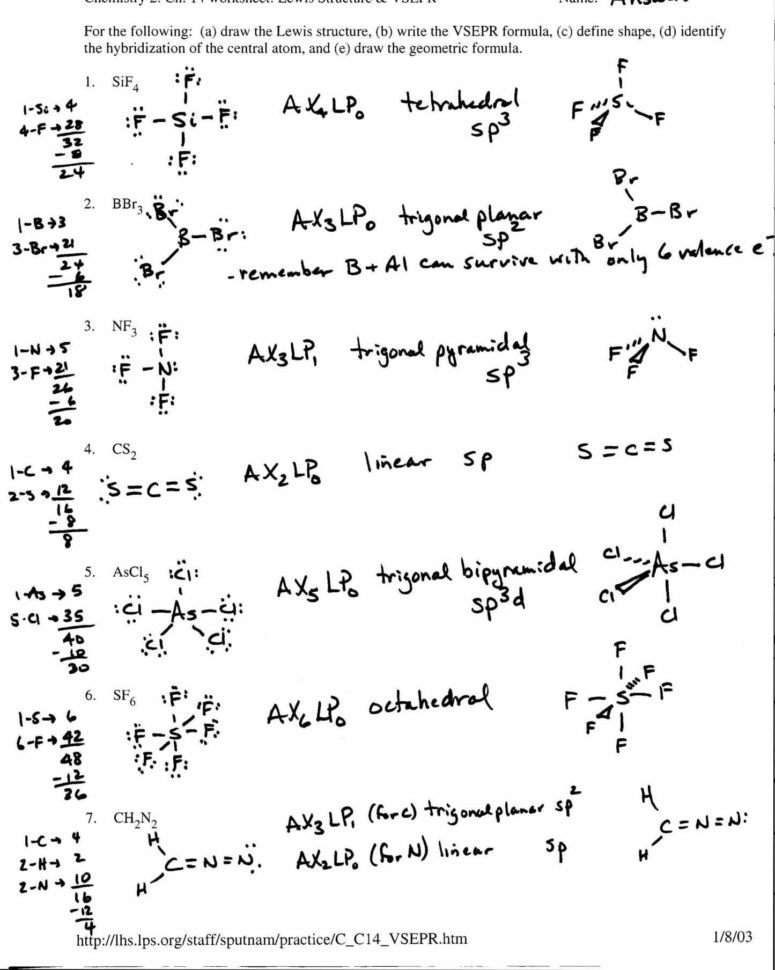 Chemistry 2: Ch. 14 worksheet: Lewis Structure & VSEPR Name: Answers
For the following: (a) draw the Lewis structure, (b) write the VSEPR formula, (c) define shape, (d) identify
the hybridization of the central atom, and (e) draw the geometric formula.
1. SiF4
1-Si → 4
4-F → 28
32
- 8
24
F
F - Si - F
F
AX4LP0 tetrahedral
sp3
F
F S F
F
2. BBr3
1-B → 3
3-Br → 21
24
- 6
18
Br
B - Br
Br
AX3LP0 trigonal planar
sp2
Br
B - Br
Br
- remember B + Al can survive with only 6 valence e-
3. NF3
1-N → 5
3-F → 21
26
- 6
20
F
F - N
F
AX3LP1 trigonal pyramidal
sp3
N
F F
F
4. CS2
1-C → 4
2-S → 12
16
- 8
8
S = C = S
AX2LP0 linear sp
S = C = S
5. AsCl5
1-As → 5
5-Cl → 35
40
- 10
30
Cl
Cl - As - Cl
Cl Cl
AX5LP0 trigonal bipyramidal
sp3d
Cl
Cl As - Cl
Cl
Cl
6. SF6
1-S → 6
6-F → 42
48
- 12
36
F F
F - S - F
F F
AX6LP0 octahedral
F
F
F - S - F
F
F
7. CH2N2
1-C → 4
2-H → 2
2-N → 10
16
-12
4
H
C = N = N
H
AX3LP1 (for C) trigonal planar sp2
AX2LP0 (for N) linear sp
H
C = N = N:
H
http://lhs.lps.org/staff/sputnam/practice/C_C14_VSEPR.htm 1/8/03